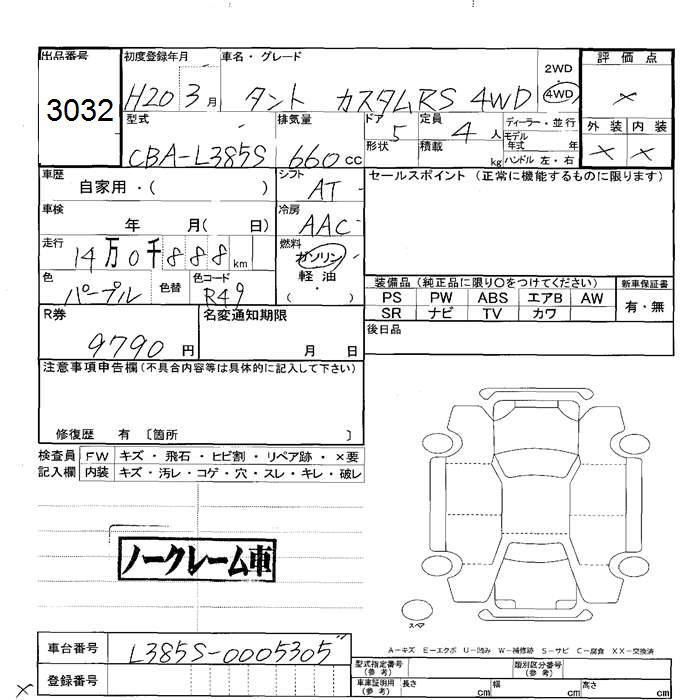 出品番号 初度登録年月 車名・グレード 評価点
3032 H20 3月 タント カスタムRS 4WD 2WD 4WD ×
型式 排気量 ドア 定員 ディーラー・並行 外装 内装
CBA-L385S 660cc 5 4人 モデル年式 年 × ×
形状 積載 kg ハンドル 左・右
車歴 自家用・( ) シフト AT セールスポイント (正常に機能するものに限ります)
車検 年 月( 日) 冷房 AAC
走行 14万0千888km 燃料 ガソリン・軽油 ( )
色 パープル 色替 色コード R49
装備品 (純正品に限り〇をつけてください) 新車保証書
PS PW ABS エアB AW 有・無
SR ナビ TV カワ
R券 9790円 名変通知期限 月 日 後日品
注意事項申告欄(不具合内容等は具体的に記入して下さい)
修復歴 有 〔箇所 〕
検査員 FW キズ・飛石・ヒビ割・リペア跡・×要
記入欄 内装 キズ・汚レ・コゲ・穴・スレ・キレ・破レ
ノークレーム車
スペア
A-キズ E-エクボ U-凹み W-補修跡 S-サビ C-腐食 XX-交換済
車台番号 L385S-0005305"
登録番号
型式指定番号 (参考) 類別区分番号 (参考)
車庫証明用 (参考) 長さ cm 幅 cm 高さ cm
×